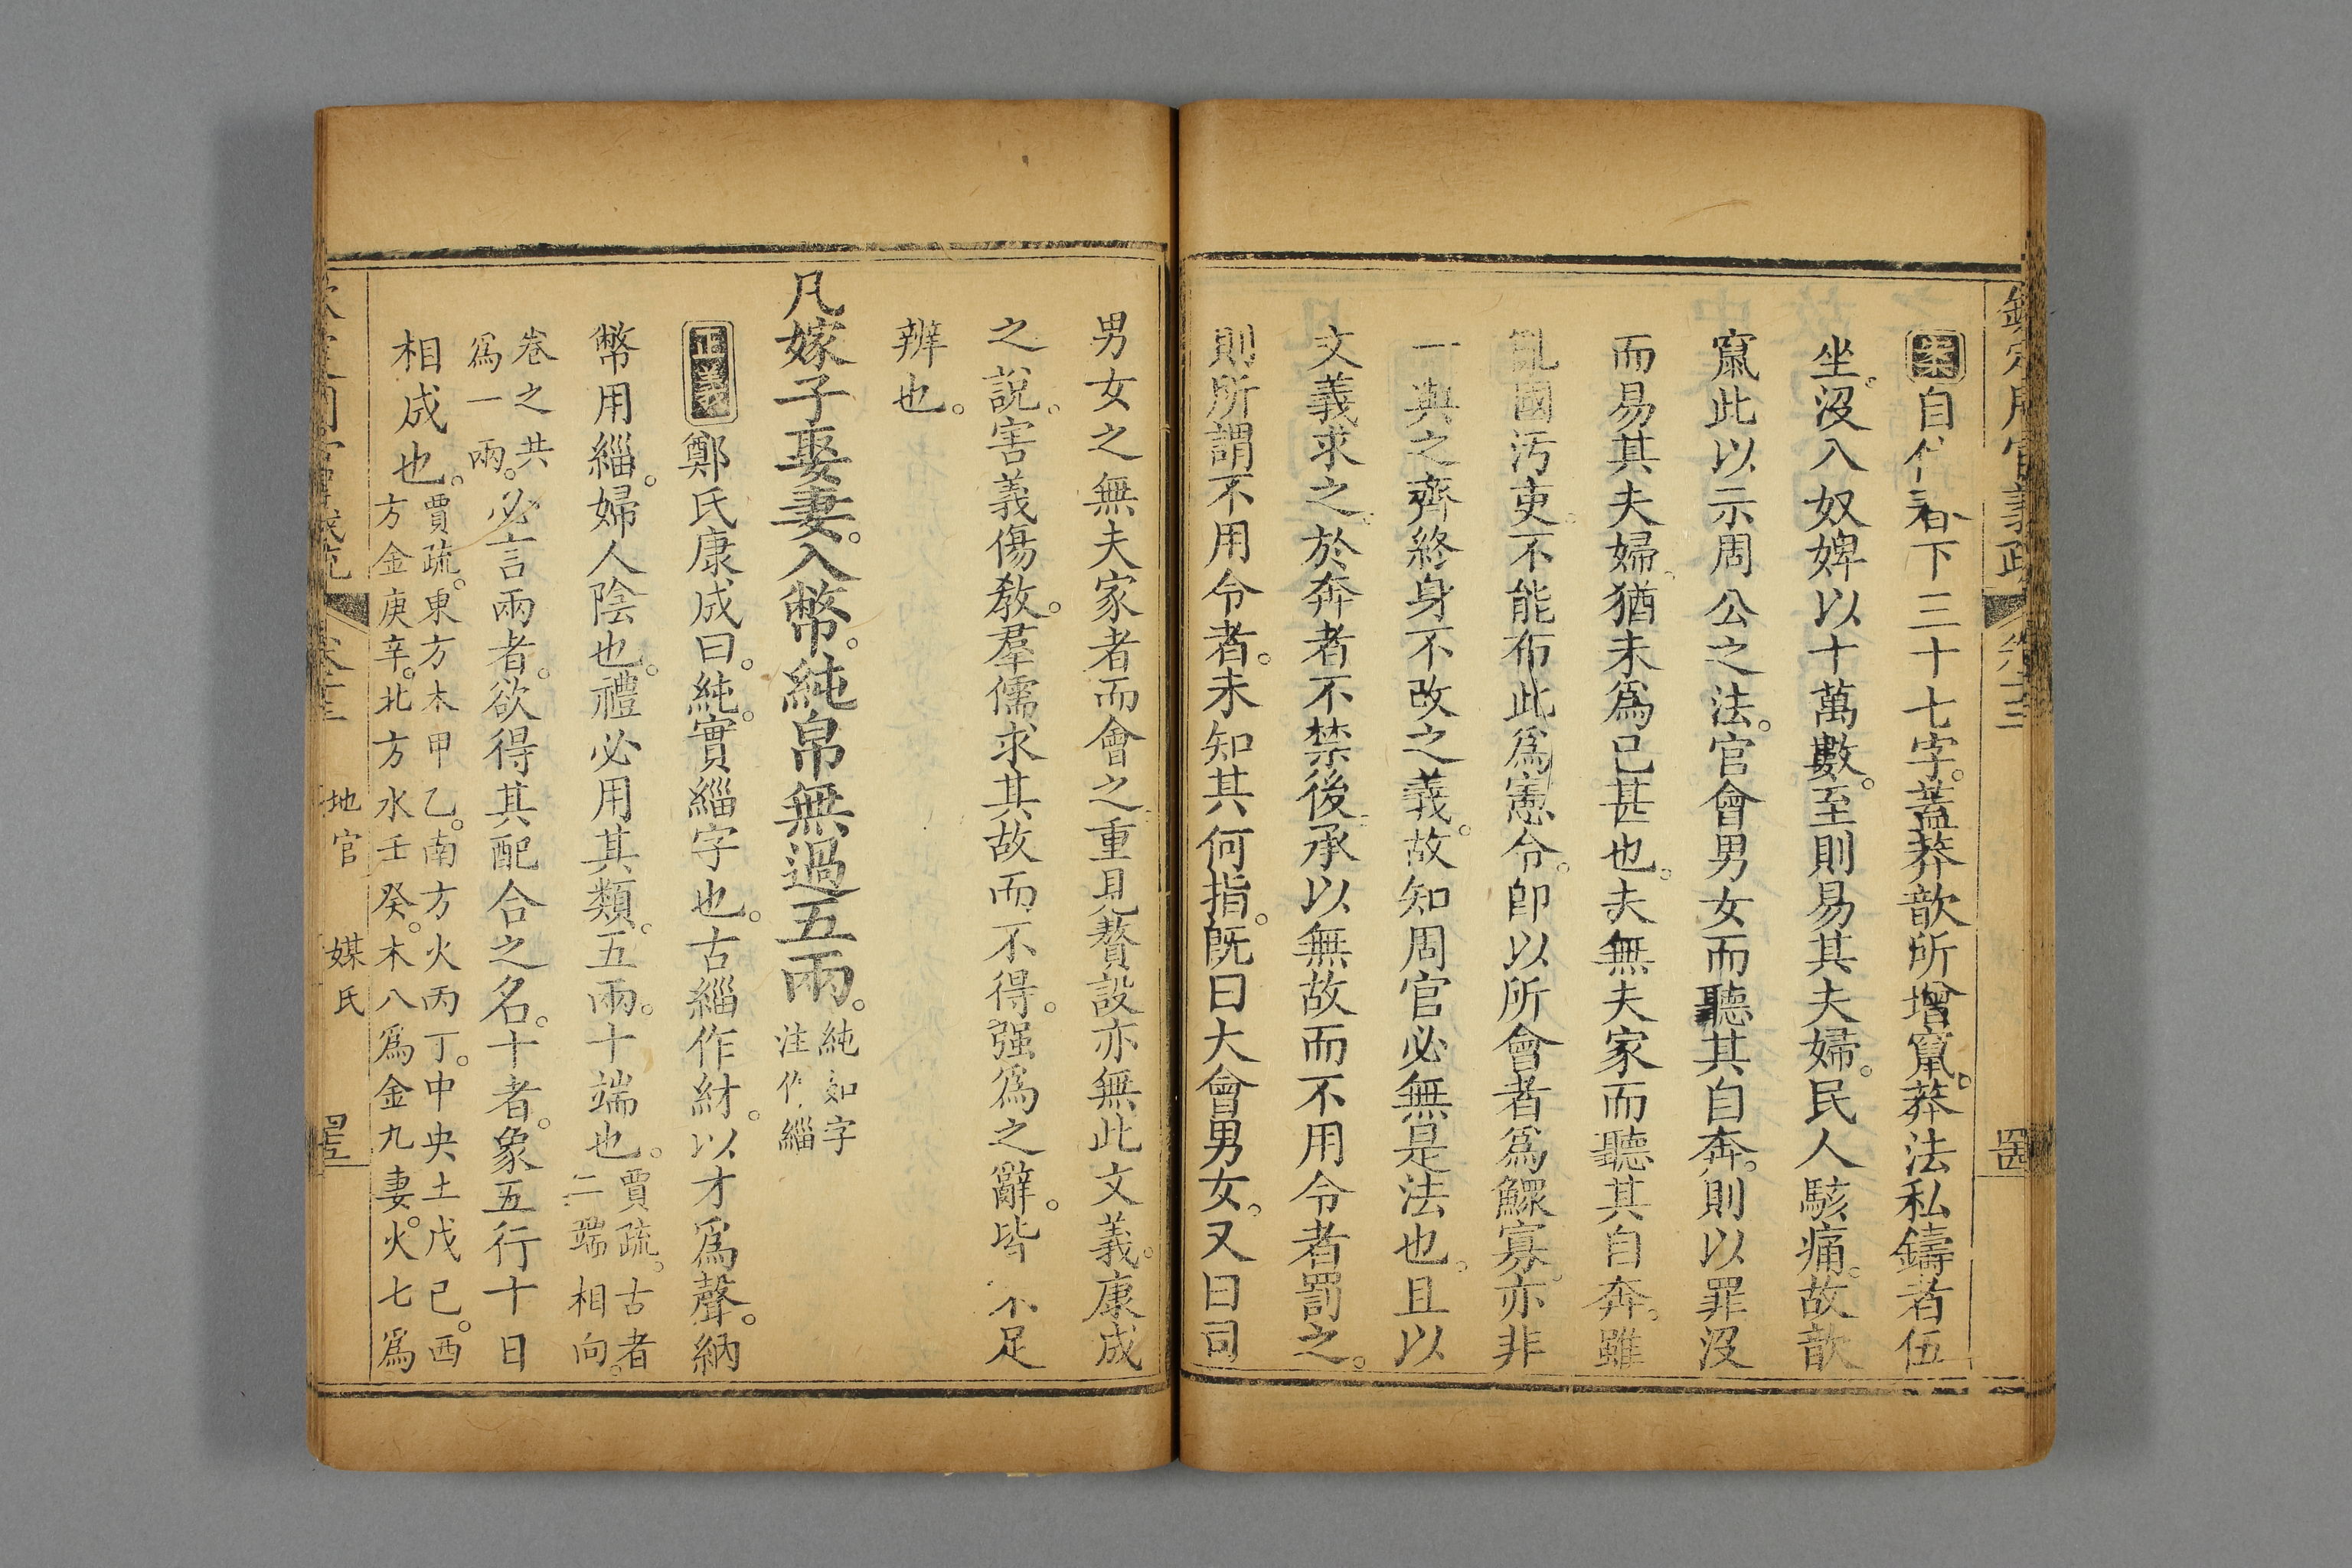 欽定周官義疏 卷十三 四
案自仲春下三十七字。葢莽歆所增竄。莽法私鑄者伍
坐。沒入奴婢以十萬數。至則易其夫婦。民人駭痛。故歆
竄此以示周公之法。官會男女而聽其自奔。則以罪沒
而易其夫婦。猶未爲已甚也。夫無夫家而聽其自奔。雖
亂國汚吏。不能布此爲憲令。卽以所會者爲鰥寡。亦非
一與之齊終身不改之義。故知周官必無是法也。且以
文義求之。於奔者不禁後。承以無故而不用令者罰之。
則所謂不用令者。未知其何指。旣曰大會男女。又曰司
男女之無夫家者而會之。重見贅設亦無此文義。康成
之說。害義傷敎。羣儒求其故而不得。强爲之辭。皆不足
辨也。
凡嫁子娶妻。入幣。純帛無過五兩。純如字
注作緇
正義鄭氏康成曰。純。實緇字也。古緇作紂。以才爲聲。納
幣用緇。婦人陰也。禮必用其類。五兩。十端也。賈疏。古者
二端相向。
卷之共
爲一兩。必言兩者。欲得其配合之名。十者。象五行十日
相成也。賈疏。東方木甲乙。南方火丙丁。中央土戊己。西
方金庚辛。北方水壬癸。木八爲金九妻。火七爲
地官 媒氏